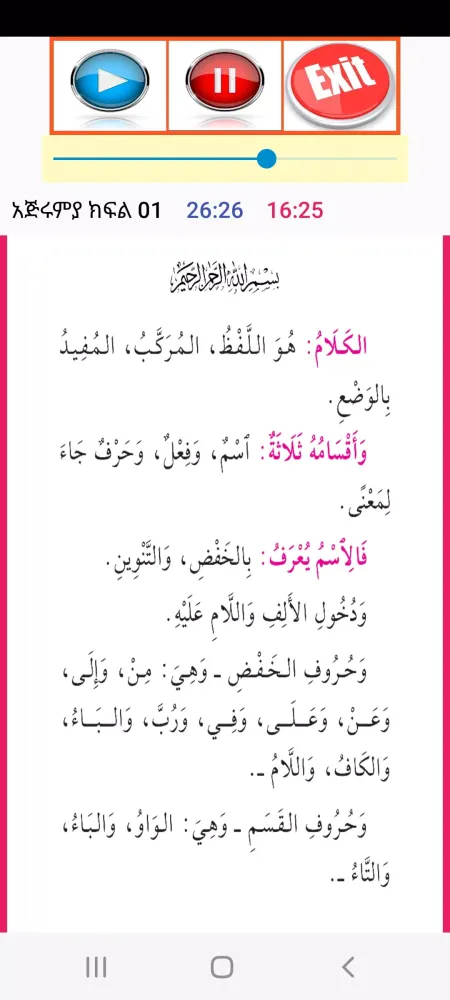 Exit
አጅሩምያ ክፍል 01 26:26 16:25
بِسْمِ اللَّهِ الرَّحْمَٰنِ الرَّحِيمِ
الكَلَامُ: هُوَ اللَّفْظُ، المُرَكَّبُ، المُفِيدُ
بِالوَضْعِ.
وَأَقْسَامُهُ ثَلَاثَةٌ: ٱسْمٌ، وَفِعْلٌ، وَحَرْفٌ جَاءَ
لِمَعْنًى.
فَالِٱسْمُ يُعْرَفُ: بِالخَفْضِ، وَالتَّنْوِينِ.
وَدُخُولِ الأَلِفِ وَاللَّامِ عَلَيْهِ.
وَحُرُوفِ الخَفْضِ ـ وَهِيَ: مِنْ، وَإِلَى،
وَعَنْ، وَعَلَى، وَفِي، وَرُبَّ، وَالبَاءُ،
وَالكَافُ، وَاللَّامُ ـ.
وَحُرُوفِ القَسَمِ ـ وَهِيَ: الوَاوُ، وَالبَاءُ،
وَالتَّاءُ ـ.